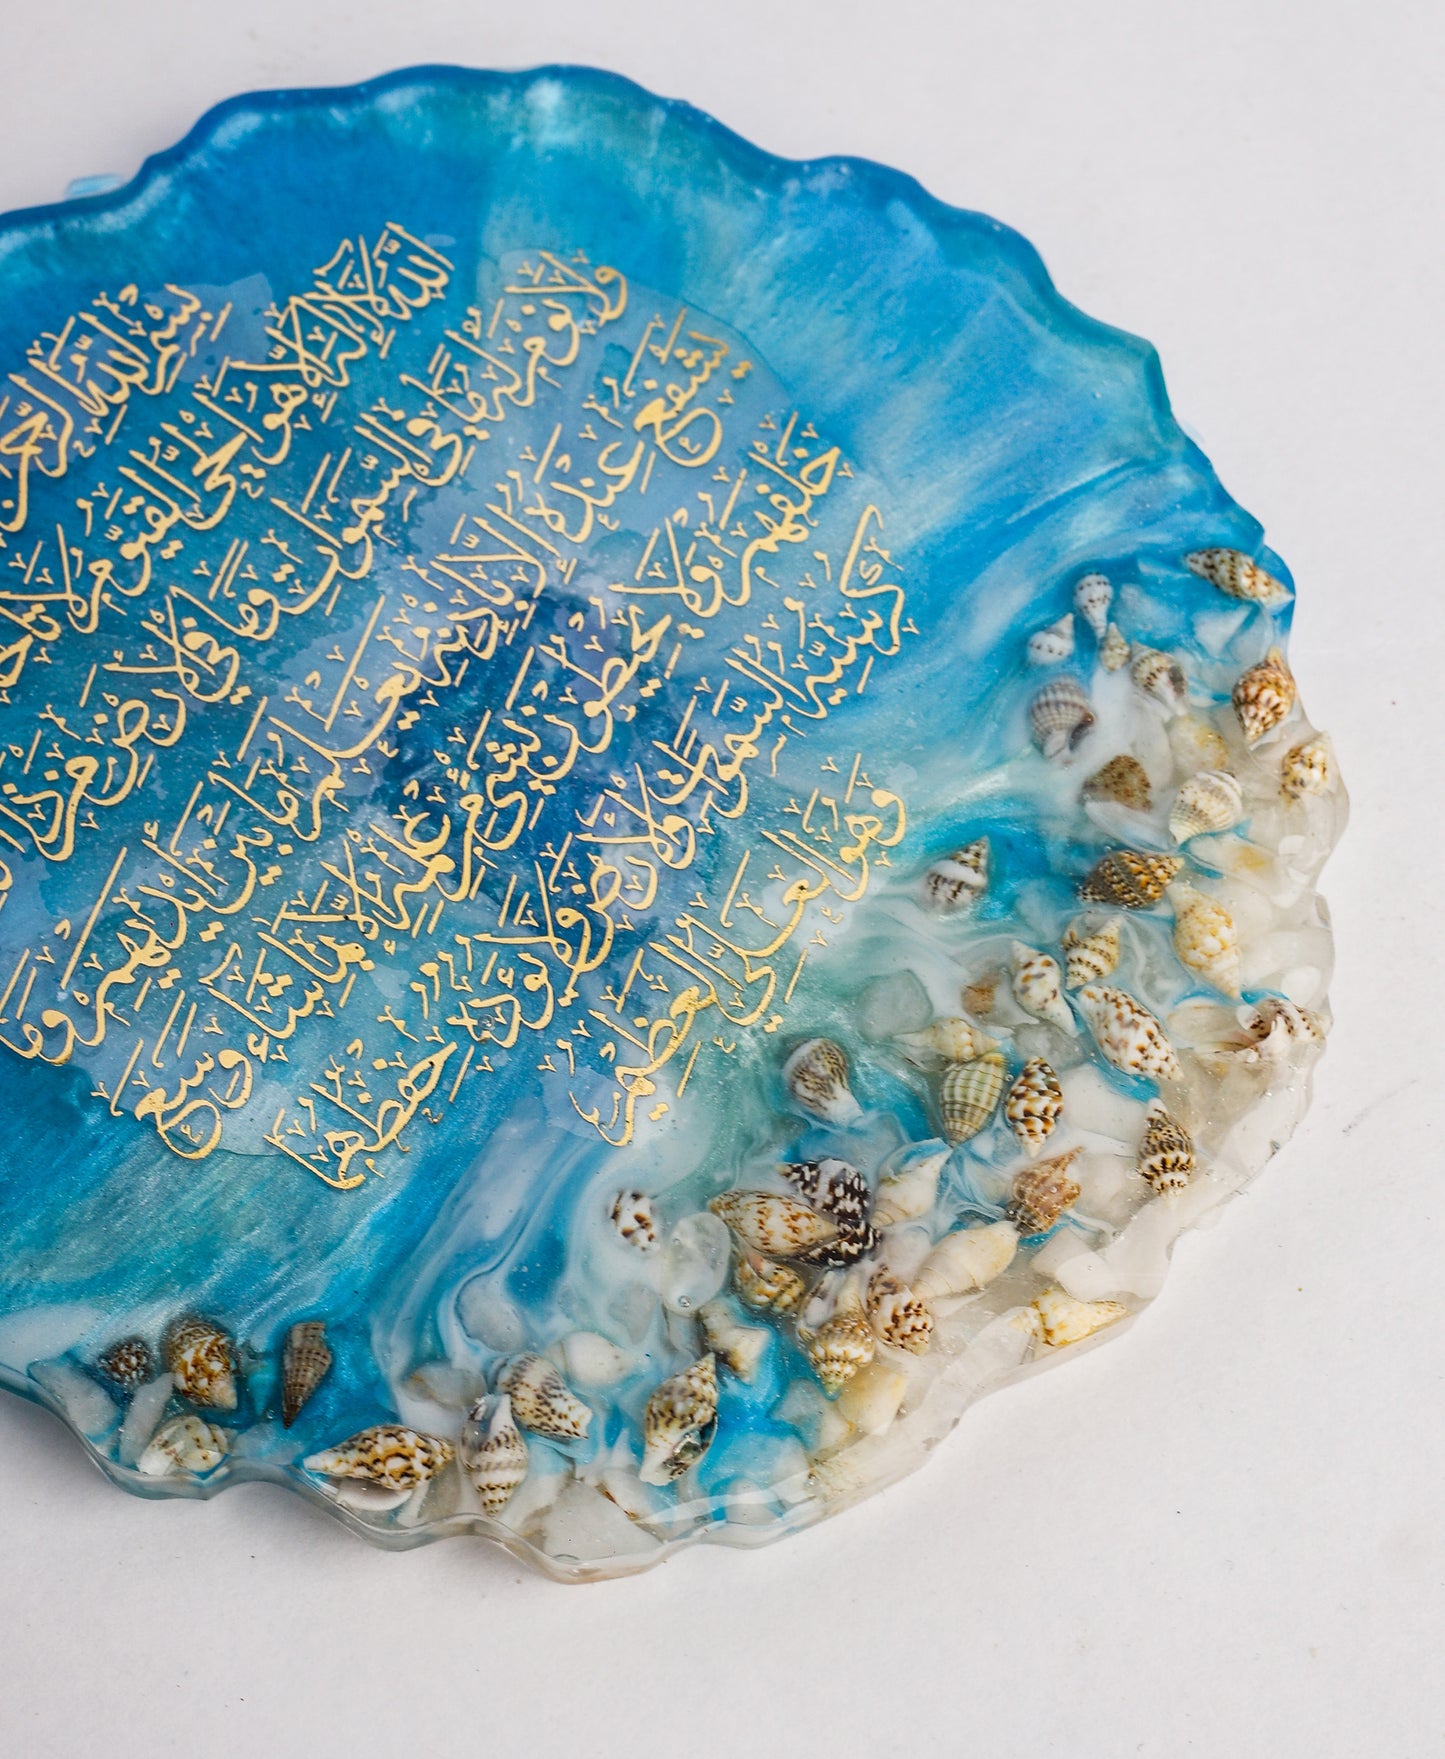 بِسْمِ اللَّهِ الرَّحْمٰنِ
اللَّهُ لَا إِلَهَ إِلَّا هُوَ الْحَيُّ الْقَيُّومُ لَا
وَلَا نَوْمٌ لَهُ مَا فِي السَّمٰوَاتِ وَمَا فِي الْأَرْضِ مَنْ ذَا
يَشْفَعُ عِنْدَهُ إِلَّا بِإِذْنِهِ يَعْلَمُ مَا بَيْنَ أَيْدِيهِمْ وَمَا
خَلْفَهُمْ وَلَا يُحِيطُونَ بِشَيْءٍ مِنْ عِلْمِهِ إِلَّا بِمَا شَاءَ وَسِعَ
كُرْسِيُّهُ السَّمٰوَاتِ وَالْأَرْضَ وَلَا يَئُودُهُ حِفْظُهُمَا
وَهُوَ الْعَلِيُّ الْعَظِيمُ